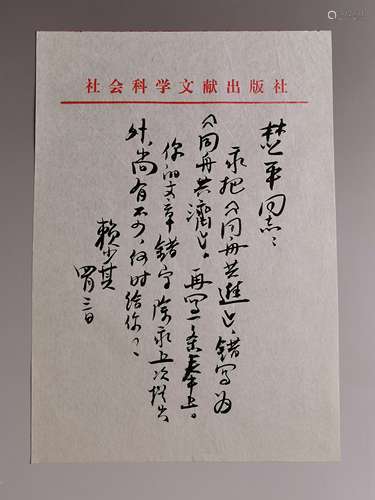 社会科学文献出版社
楚平同志：
我把《同舟共進》错写为
《同舟共濟》，再写一条奉上。
你的文章错字除我上次提出
外，尚有不少，何时给你？
赖少其
四月三日